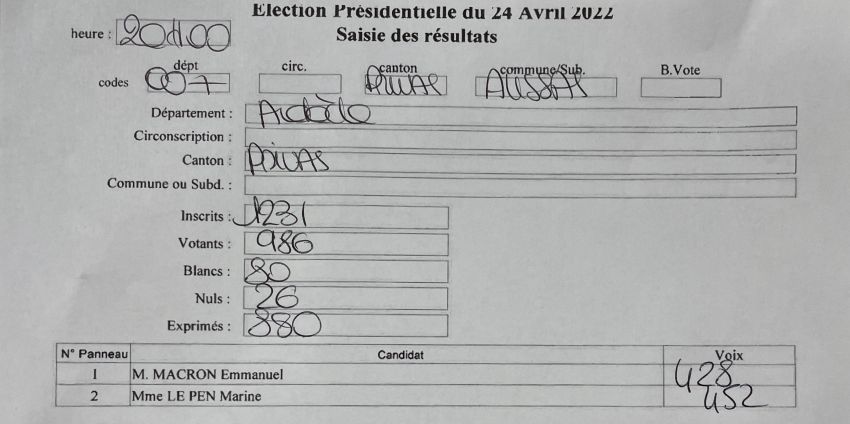 Election Présidentielle du 24 Avril 2022
heure : 20H00
Saisie des résultats
codes dépt 007 circ. canton PRIVAS commune/Sub. AUSSAS B.Vote
Département : Ardèche
Circonscription :
Canton : PRIVAS
Commune ou Subd. :
Inscrits : 1231
Votants : 986
Blancs : 80
Nuls : 26
Exprimés : 880
N° Panneau Candidat Voix
1 M. MACRON Emmanuel 428
2 Mme LE PEN Marine 452